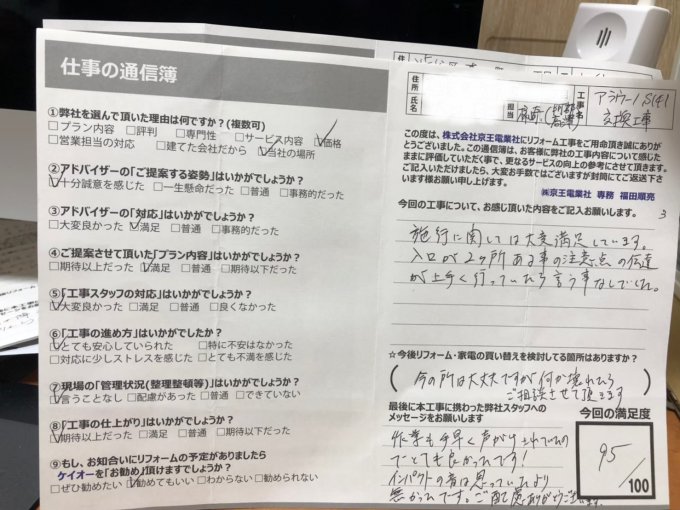 仕事の通信簿
①弊社を選んで頂いた理由は何ですか?(複数可)
□プラン内容 □評判 □専門性 □サービス内容 ☑価格
□営業担当の対応 □建てた会社だから ☑当社の場所
②アドバイザーの「ご提案する姿勢」はいかがでしょうか?
☑十分誠意を感じた □一生懸命だった □普通 □事務的だった
③アドバイザーの「対応」はいかがでしょうか?
□大変良かった ☑満足 □普通 □事務的だった
④ご提案させて頂いた「プラン内容」はいかがでしょうか?
□期待以上だった ☑満足 □普通 □期待以下だった
⑤「工事スタッフの対応」はいかがでしょうか?
☑大変良かった □満足 □普通 □良くなかった
⑥「工事の進め方」はいかがでしたか?
☑とても安心していられた □特に不安はなかった
□対応に少しストレスを感じた □とても不満を感じた
⑦現場の「管理状況(整理整頓等)」はいかがでしょうか?
☑言うことなし □配慮があった □普通 □できていない
⑧「工事の仕上がり」はいかがでしょうか?
☑期待以上だった □満足 □普通 □期待以下だった
⑨もし、お知合いにリフォームの予定がありましたら
ケイオーを「お勧め」頂けますでしょうか?
□ぜひ勧めたい ☑勧めてもいい □わからない □勧められない
住所
氏名
担当
工事名
交換工事
この度は、株式会社京王電業社にリフォーム工事をご用命頂き誠にありが
とうございました。この通信簿は、お客様に弊社の工事内容について感じた
ままに評価していただく事で、更なるサービスの向上の参考にさせて頂きます。
ご記入いただけましたら、大変お手数ではございますが封筒にてご返送下さ
います様お願い申し上げます。
㈱京王電業社 専務 福田順亮
今回の工事について、お感じ頂いた内容をご記入お願いします。
施行に関しては大変満足しています。
入口が2ヶ所ある事の注意点の伝達
が上手く行っていたら言う事なしでした。
☆今後リフォーム・家電の買い替えを検討してる箇所はありますか?
(今の所は大丈夫ですが何か壊れたら
ご相談させて頂きます)
最後に本工事に携わった弊社スタッフへの
メッセージをお願いします
作業も手早く声がけ上れていたの
でとても良かったです!
インパクトの音は思っていたより
無かったです。ご配慮ありがとうございます。
今回の満足度
95
/100